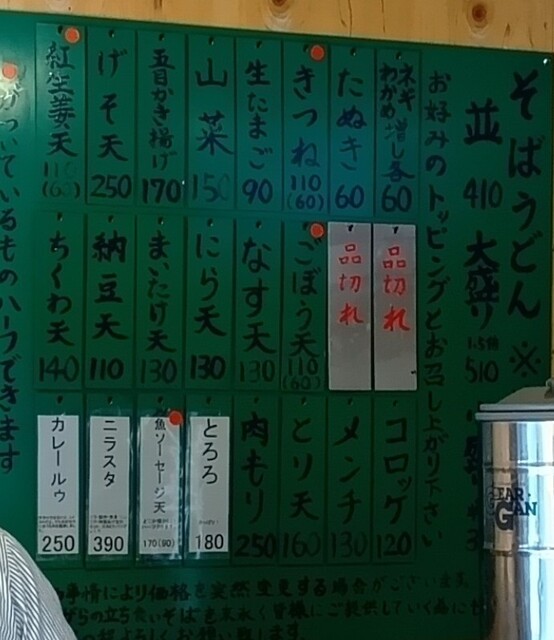 そばうどん※
並 410 大盛り 1.5倍 510
お好みのトッピングとお召し上がり下さい
ネギ わかめ 増し各 60
たぬき 60
きつね 110 (60)
生たまご 90
山菜 150
五目かき揚げ 170
げそ天 250
紅生姜天 110 (60)
品切れ
品切れ
ごぼう天 110 (60)
なす天 130
にら天 130
まいたけ天 130
納豆天 110
ちくわ天 140
コロッケ 120
メンチ 130
とり天 160
肉もり 250
とろろ 180
魚ソーセージ天 170(90)
ニラスタ 390
カレールゥ 250
がついているものハーフできます
事情により価格を突然変更する場合がございます